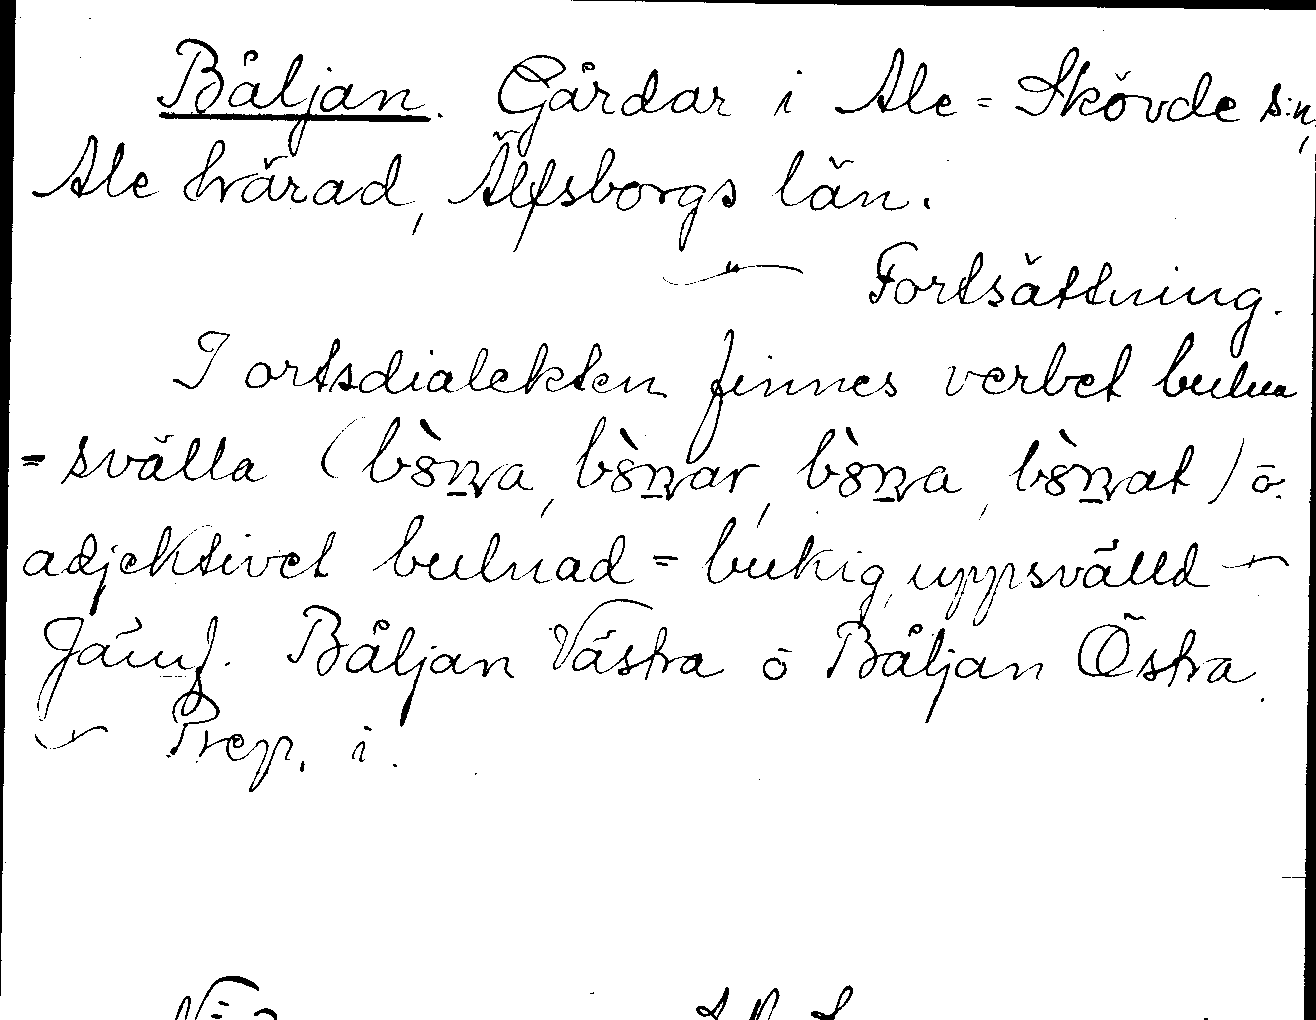 Båljan. Gårdar i Ale=Skövde s:n,
Ale härad, Älfsborgs län.
— Fortsättning.
I ortsdialekten finnes verbet bulna
= svälla (
) o.
adjektivet bulnad = bukig, uppsvälld —
Jämf. Båljan Västra o Båljan Östra.
— Prep. i.